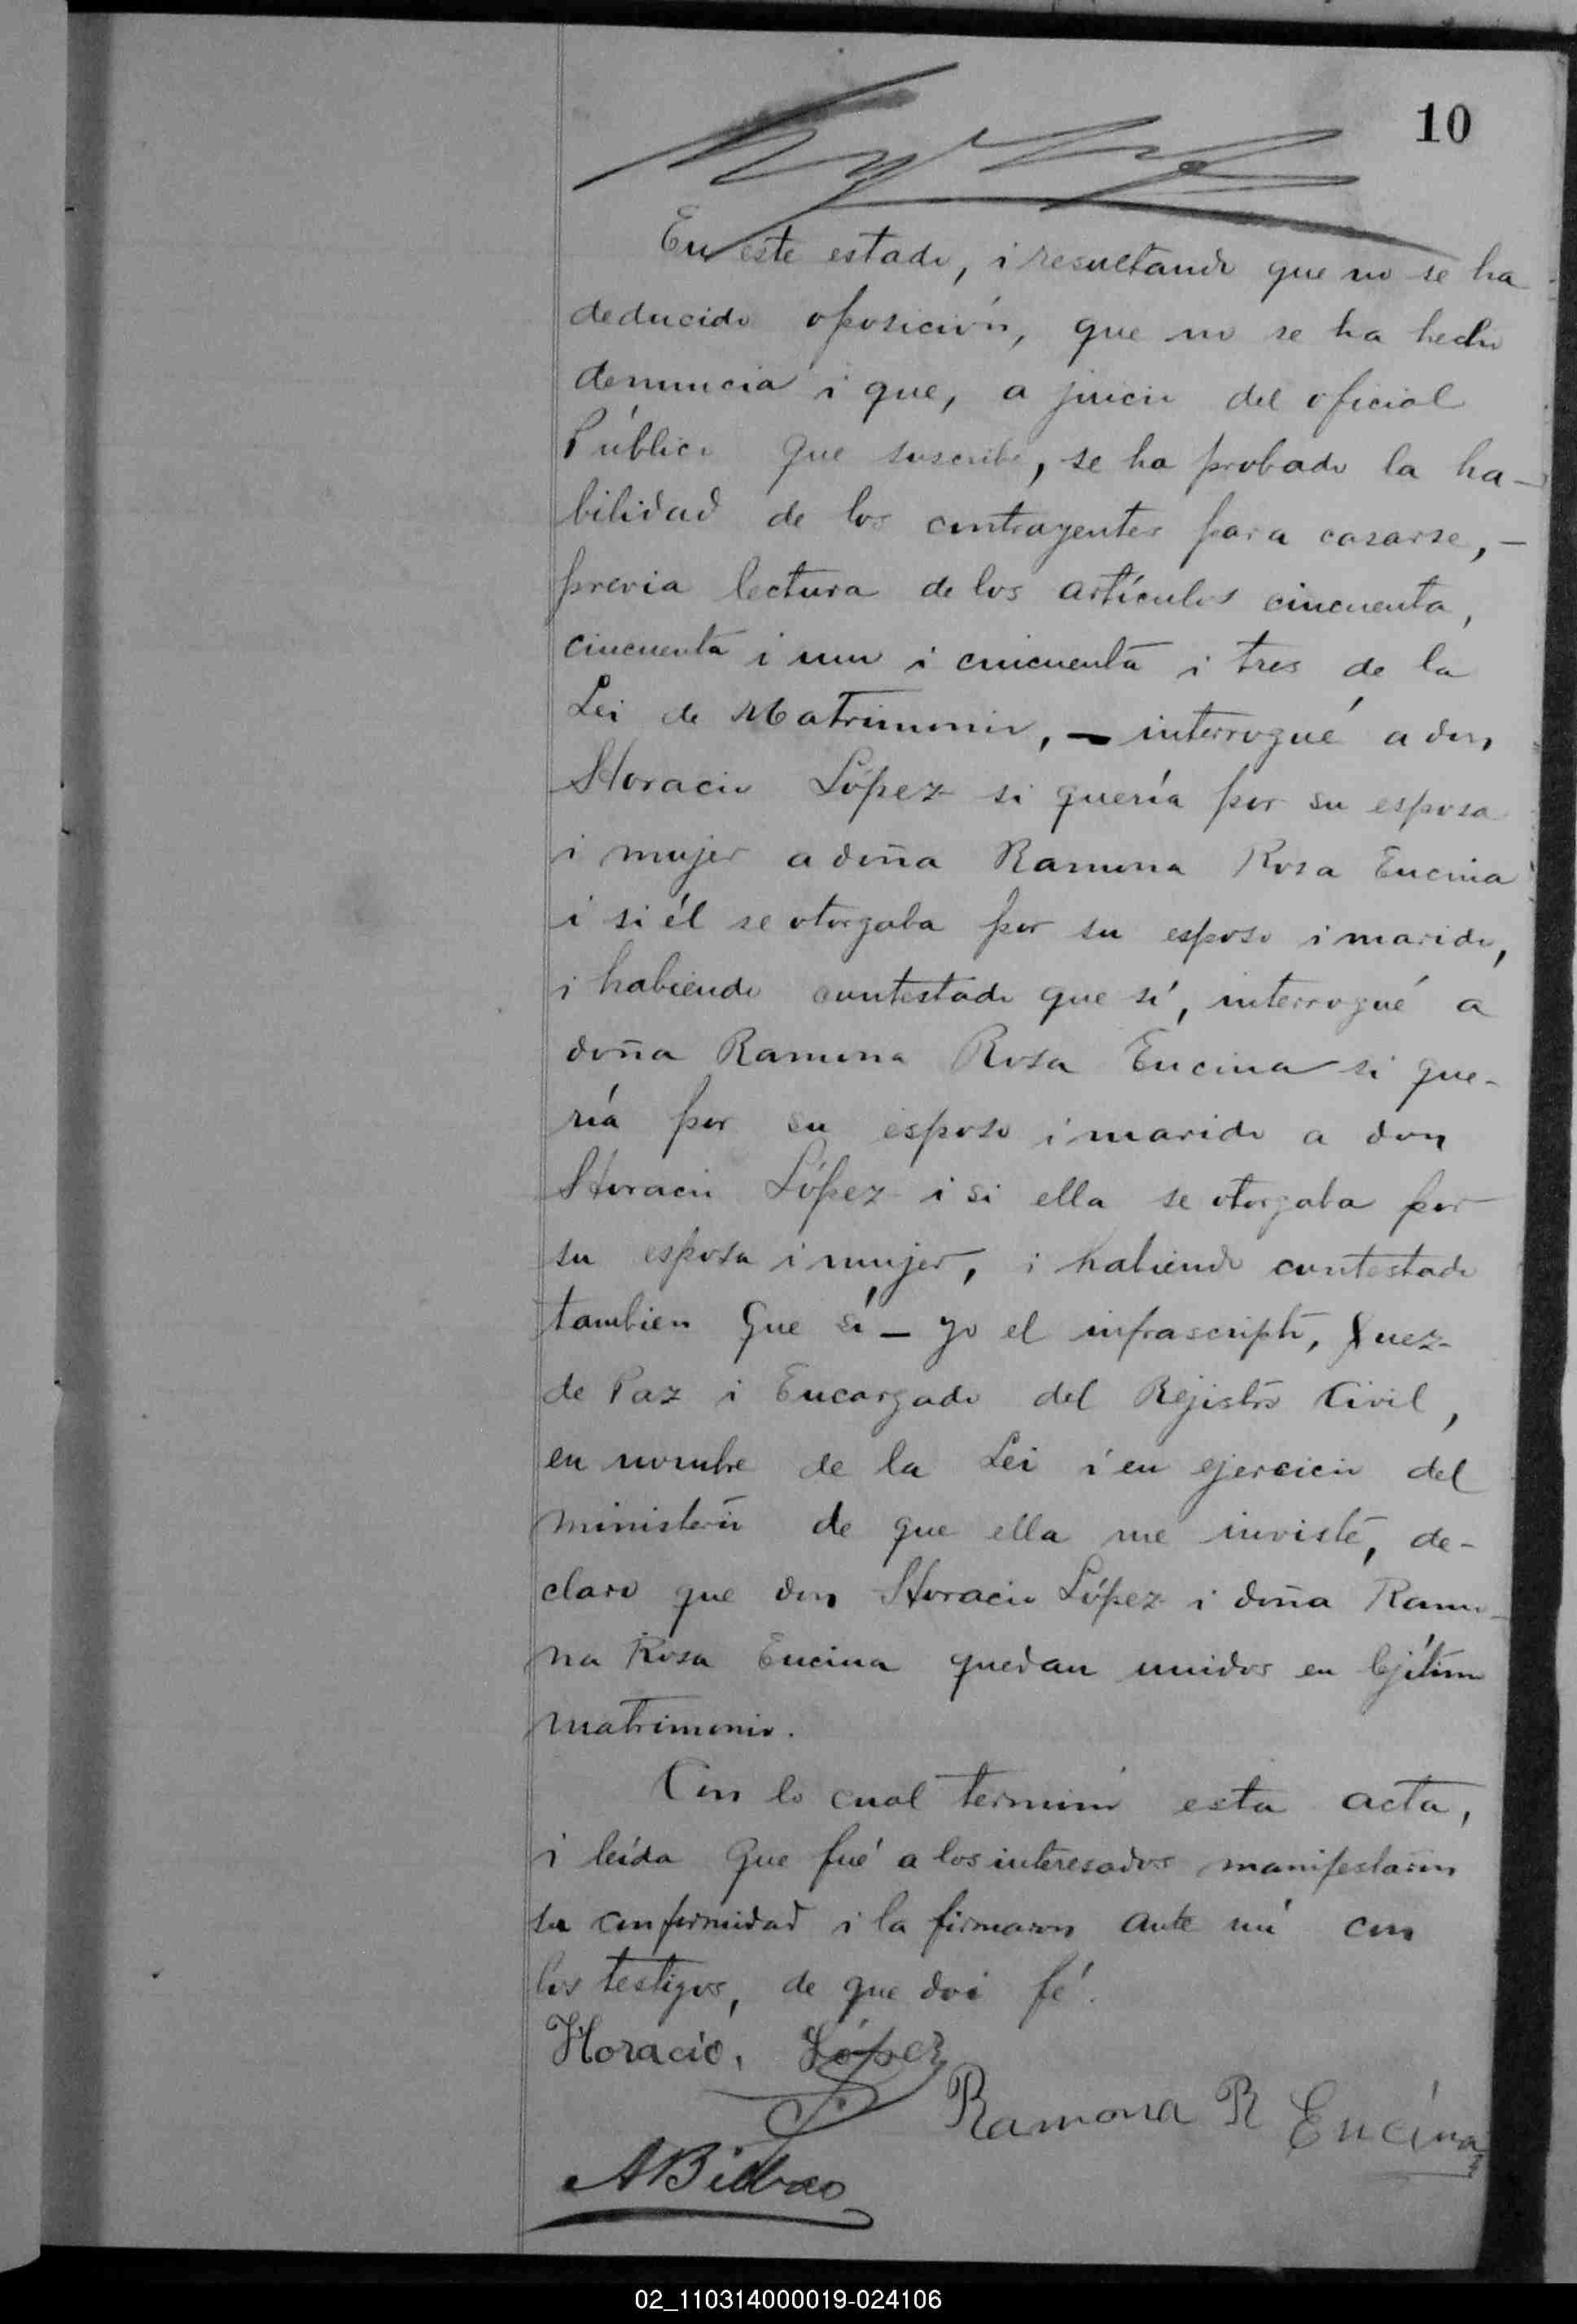 10
En este estado, i resultando que no se ha
deducido oposición, que no se ha hecho
denuncia i que, a juicio del oficial
Público que suscribe, se ha probado la ha-
bilidad de los contrayentes para casarse, -
previa lectura de los artículos cincuenta,
cincuenta i uno i cincuenta i tres de la
Lei de Matrimonio, - interrogué a don
Horacio López si quería por su esposa
i mujer a doña Ramona Rosa Encina
i si él se otorgaba por su esposo i marido,
i habiendo contestado que sí, interrogué a
doña Ramona Rosa Encina si que-
ría por su esposo i marido a don
Horacio López i si ella se otorgaba por
su esposa i mujer, i habiendo contestado
tambien que sí, - yo el infrascripto, Juez
de Paz i Encargado del Rejistro Civil,
en nombre de la Lei i en ejercicio del
ministerio de que ella me inviste, de-
claro que don Horacio López i doña Ramo-
na Rosa Encina quedan unidos en lejítimo
matrimonio.
Con lo cual terminó esta acta,
i leída que fué a los interesados manifestaron
su conformidad i la firmaron ante mí con
los testigos, de que doi fé.
Horacio, López
Ramona R Encina
ABilbao
02_110314000019-024106